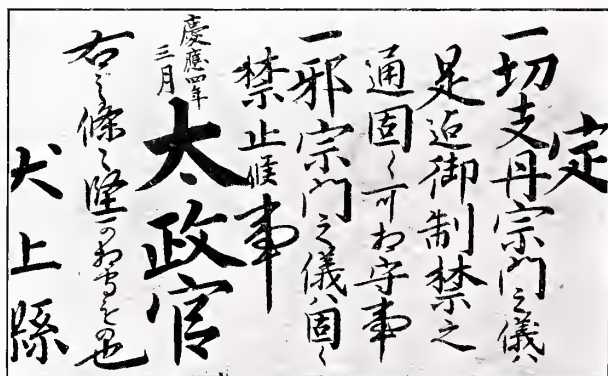 定
一切支丹宗門之儀ハ
是迠御制禁之
通固く可相守事
一邪宗門之儀ハ固く
禁止候事
慶應四年
三月
太政官
右之條々堅可相守もの也
犬上縣